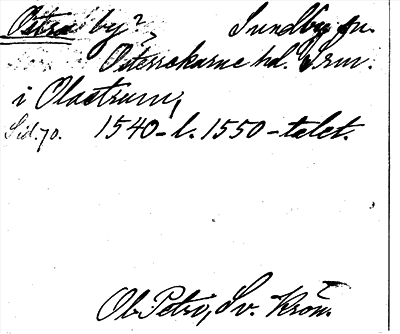 Östra by?, Sundby sn.
Österrekarne hd. Srm.
i Olastrum,
Sid. 70. 1540-t. 1550-talet.
Ol. Petri, Sv. Krön.